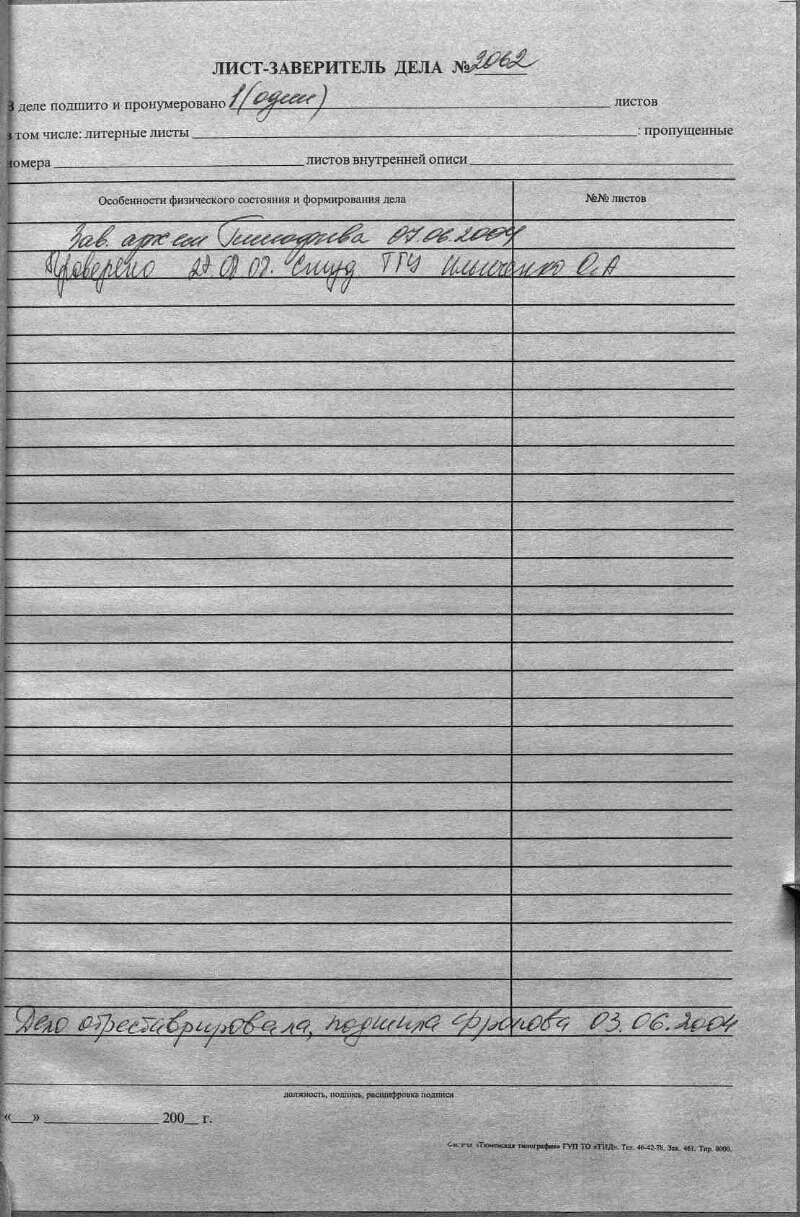 ЛИСТ-ЗАВЕРИТЕЛЬ ДЕЛА № 2062
В деле подшито и пронумеровано 1 (один) листов
в том числе: литерные листы ; пропущенные
номера листов внутренней описи
Особенности физического состояния и формирования дела №№ листов
Зав. арх-ем 07.06.2004
Проверено 27.08.08. Студ ТГУ Ильченко О.А
Дело отреставрировала, подшила Фролова 03.06.2004
должность, подпись, расшифровка подписи
«__» ____ 200__ г.
«Тюменская типография» ГУП ТО «ТИД». Тел. 46-42-78. Зак. 461. Тир. 8000.